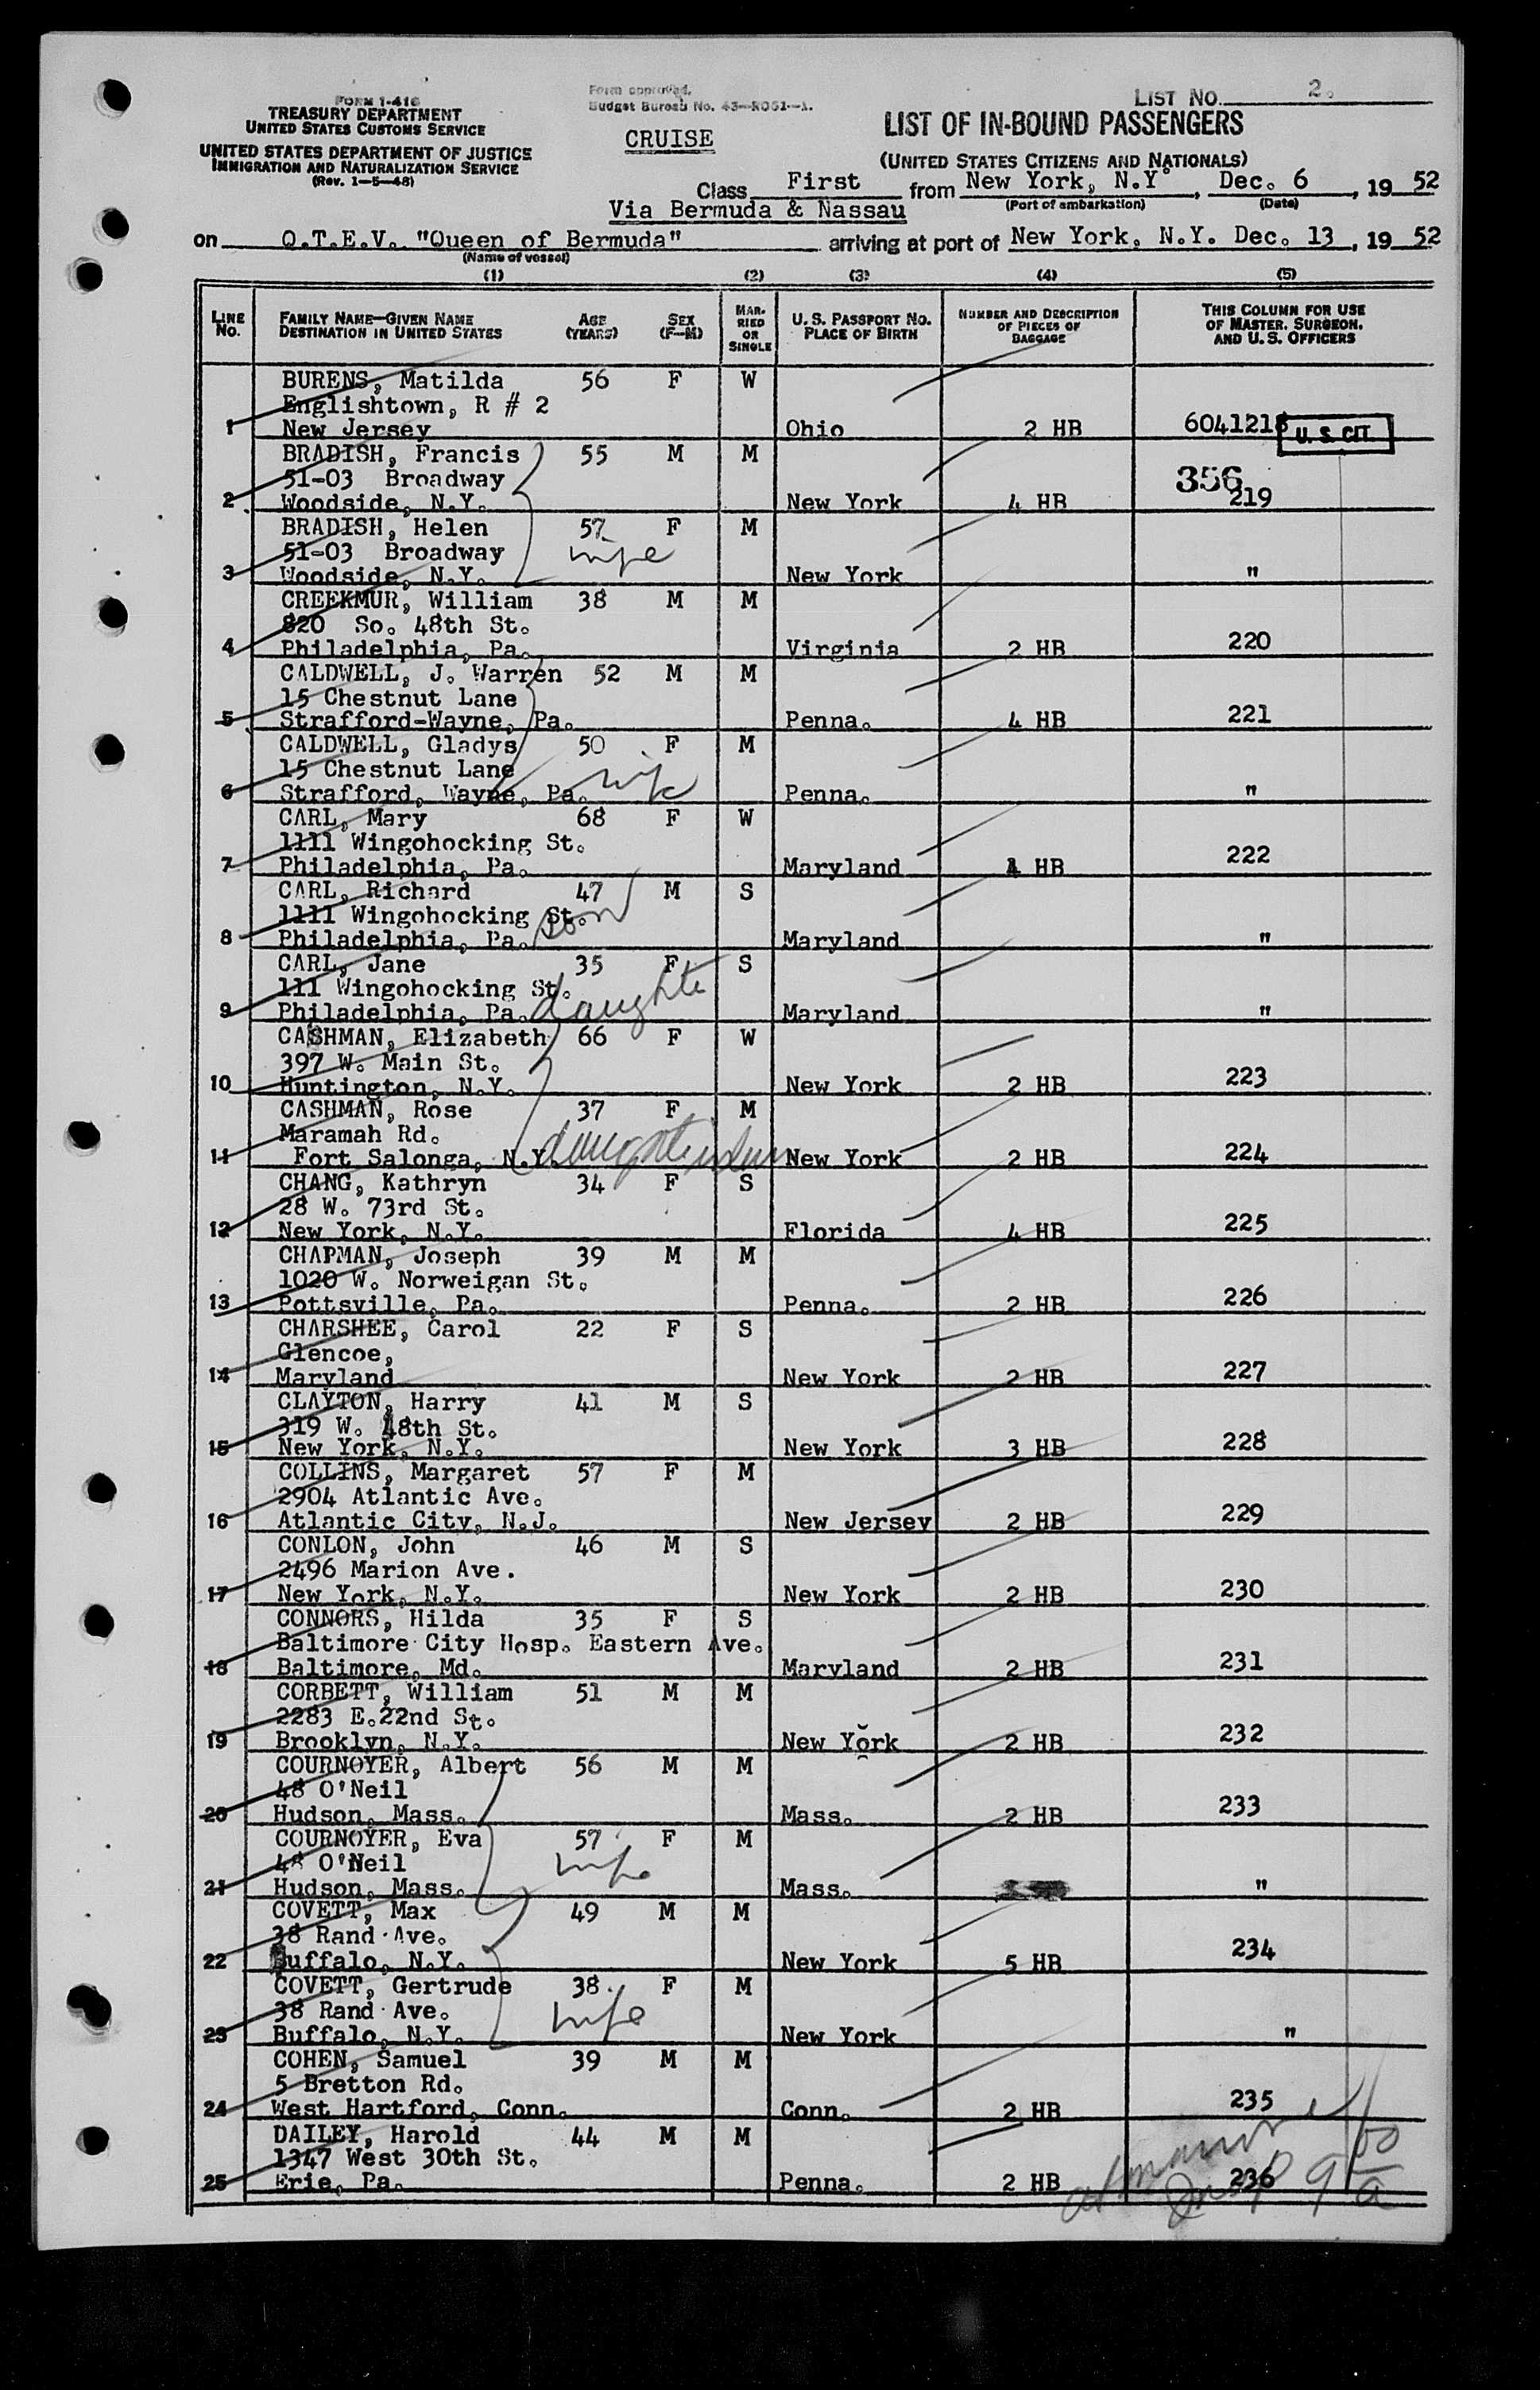 FORM I-416
TREASURY DEPARTMENT
UNITED STATES CUSTOMS SERVICE
UNITED STATES DEPARTMENT OF JUSTICE
IMMIGRATION AND NATURALIZATION SERVICE
(Rev. 1-5-48)
Form approved.
Budget Bureau No. 43-R061-1.
CRUISE
LIST NO. 2.
LIST OF IN-BOUND PASSENGERS
(UNITED STATES CITIZENS AND NATIONALS)
Class First from New York, N.Y. , Dec. 6 , 19 52
(Port of embarkation) (Date)
Via Bermuda & Nassau
on Q.T.E.V. "Queen of Bermuda" arriving at port of New York, N.Y. Dec. 13 , 19 52
(Name of vessel)
(1) (2) (3) (4) (5)
LINE No. FAMILY NAME—GIVEN NAME DESTINATION IN UNITED STATES AGE (YEARS) SEX (F—M) MARRIED OR SINGLE U. S. PASSPORT NO. PLACE OF BIRTH NUMBER AND DESCRIPTION OF PIECES OF BAGGAGE THIS COLUMN FOR USE OF MASTER, SURGEON, AND U. S. OFFICERS
BURENS, Matilda 56 F W
Englishtown, R # 2
1 New Jersey Ohio 2 HB 6041218 U. S. CIT.
BRADISH, Francis 55 M M
51-03 Broadway 356
2 Woodside, N.Y. New York 4 HB 219
BRADISH, Helen 57 F M
51-03 Broadway wife
3 Woodside, N.Y. New York "
CREEKMUR, William 38 M M
820 So. 48th St.
4 Philadelphia, Pa. Virginia 2 HB 220
CALDWELL, J. Warren 52 M M
15 Chestnut Lane
5 Strafford-Wayne, Pa. Penna. 4 HB 221
CALDWELL, Gladys 50 F M
15 Chestnut Lane wife
6 Strafford, Wayne, Pa. Penna. "
CARL, Mary 68 F W
1111 Wingohocking St.
7 Philadelphia, Pa. Maryland 4 HB 222
CARL, Richard 47 M S
1111 Wingohocking St. son
8 Philadelphia, Pa. Maryland "
CARL, Jane 35 F S
111 Wingohocking St. daughte
9 Philadelphia, Pa. Maryland "
CASHMAN, Elizabeth 66 F W
397 W. Main St.
10 Huntington, N.Y. New York 2 HB 223
CASHMAN, Rose 37 F M
Maramah Rd.
11 Fort Salonga, N.Y. New York 2 HB 224
CHANG, Kathryn 34 F S
28 W. 73rd St.
12 New York, N.Y. Florida 4 HB 225
CHAPMAN, Joseph 39 M M
1020 W. Norweigan St.
13 Pottsville, Pa. Penna. 2 HB 226
CHARSHEE, Carol 22 F S
Glencoe,
14 Maryland New York 2 HB 227
CLAYTON, Harry 41 M S
319 W. 48th St.
15 New York, N.Y. New York 3 HB 228
COLLINS, Margaret 57 F M
2904 Atlantic Ave.
16 Atlantic City, N.J. New Jersey 2 HB 229
CONLON, John 46 M S
2496 Marion Ave.
17 New York, N.Y. New York 2 HB 230
CONNORS, Hilda 35 F S
Baltimore City Hosp. Eastern Ave.
18 Baltimore, Md. Maryland 2 HB 231
CORBETT, William 51 M M
2283 E.22nd St.
19 Brooklyn, N.Y. New York 2 HB 232
COURNOYER, Albert 56 M M
48 O'Neil
20 Hudson, Mass. Mass. 2 HB 233
COURNOYER, Eva 57 F M
48 O'Neil wife
21 Hudson, Mass. Mass. "
COVETT, Max 49 M M
38 Rand Ave.
22 Buffalo, N.Y. New York 5 HB 234
COVETT, Gertrude 38 F M
38 Rand Ave. wife
23 Buffalo, N.Y. New York "
COHEN, Samuel 39 M M
5 Bretton Rd.
24 West Hartford, Conn. Conn. 2 HB 235
DAILEY, Harold 44 M M
1347 West 30th St.
25 Erie, Pa. Penna. 2 HB 236